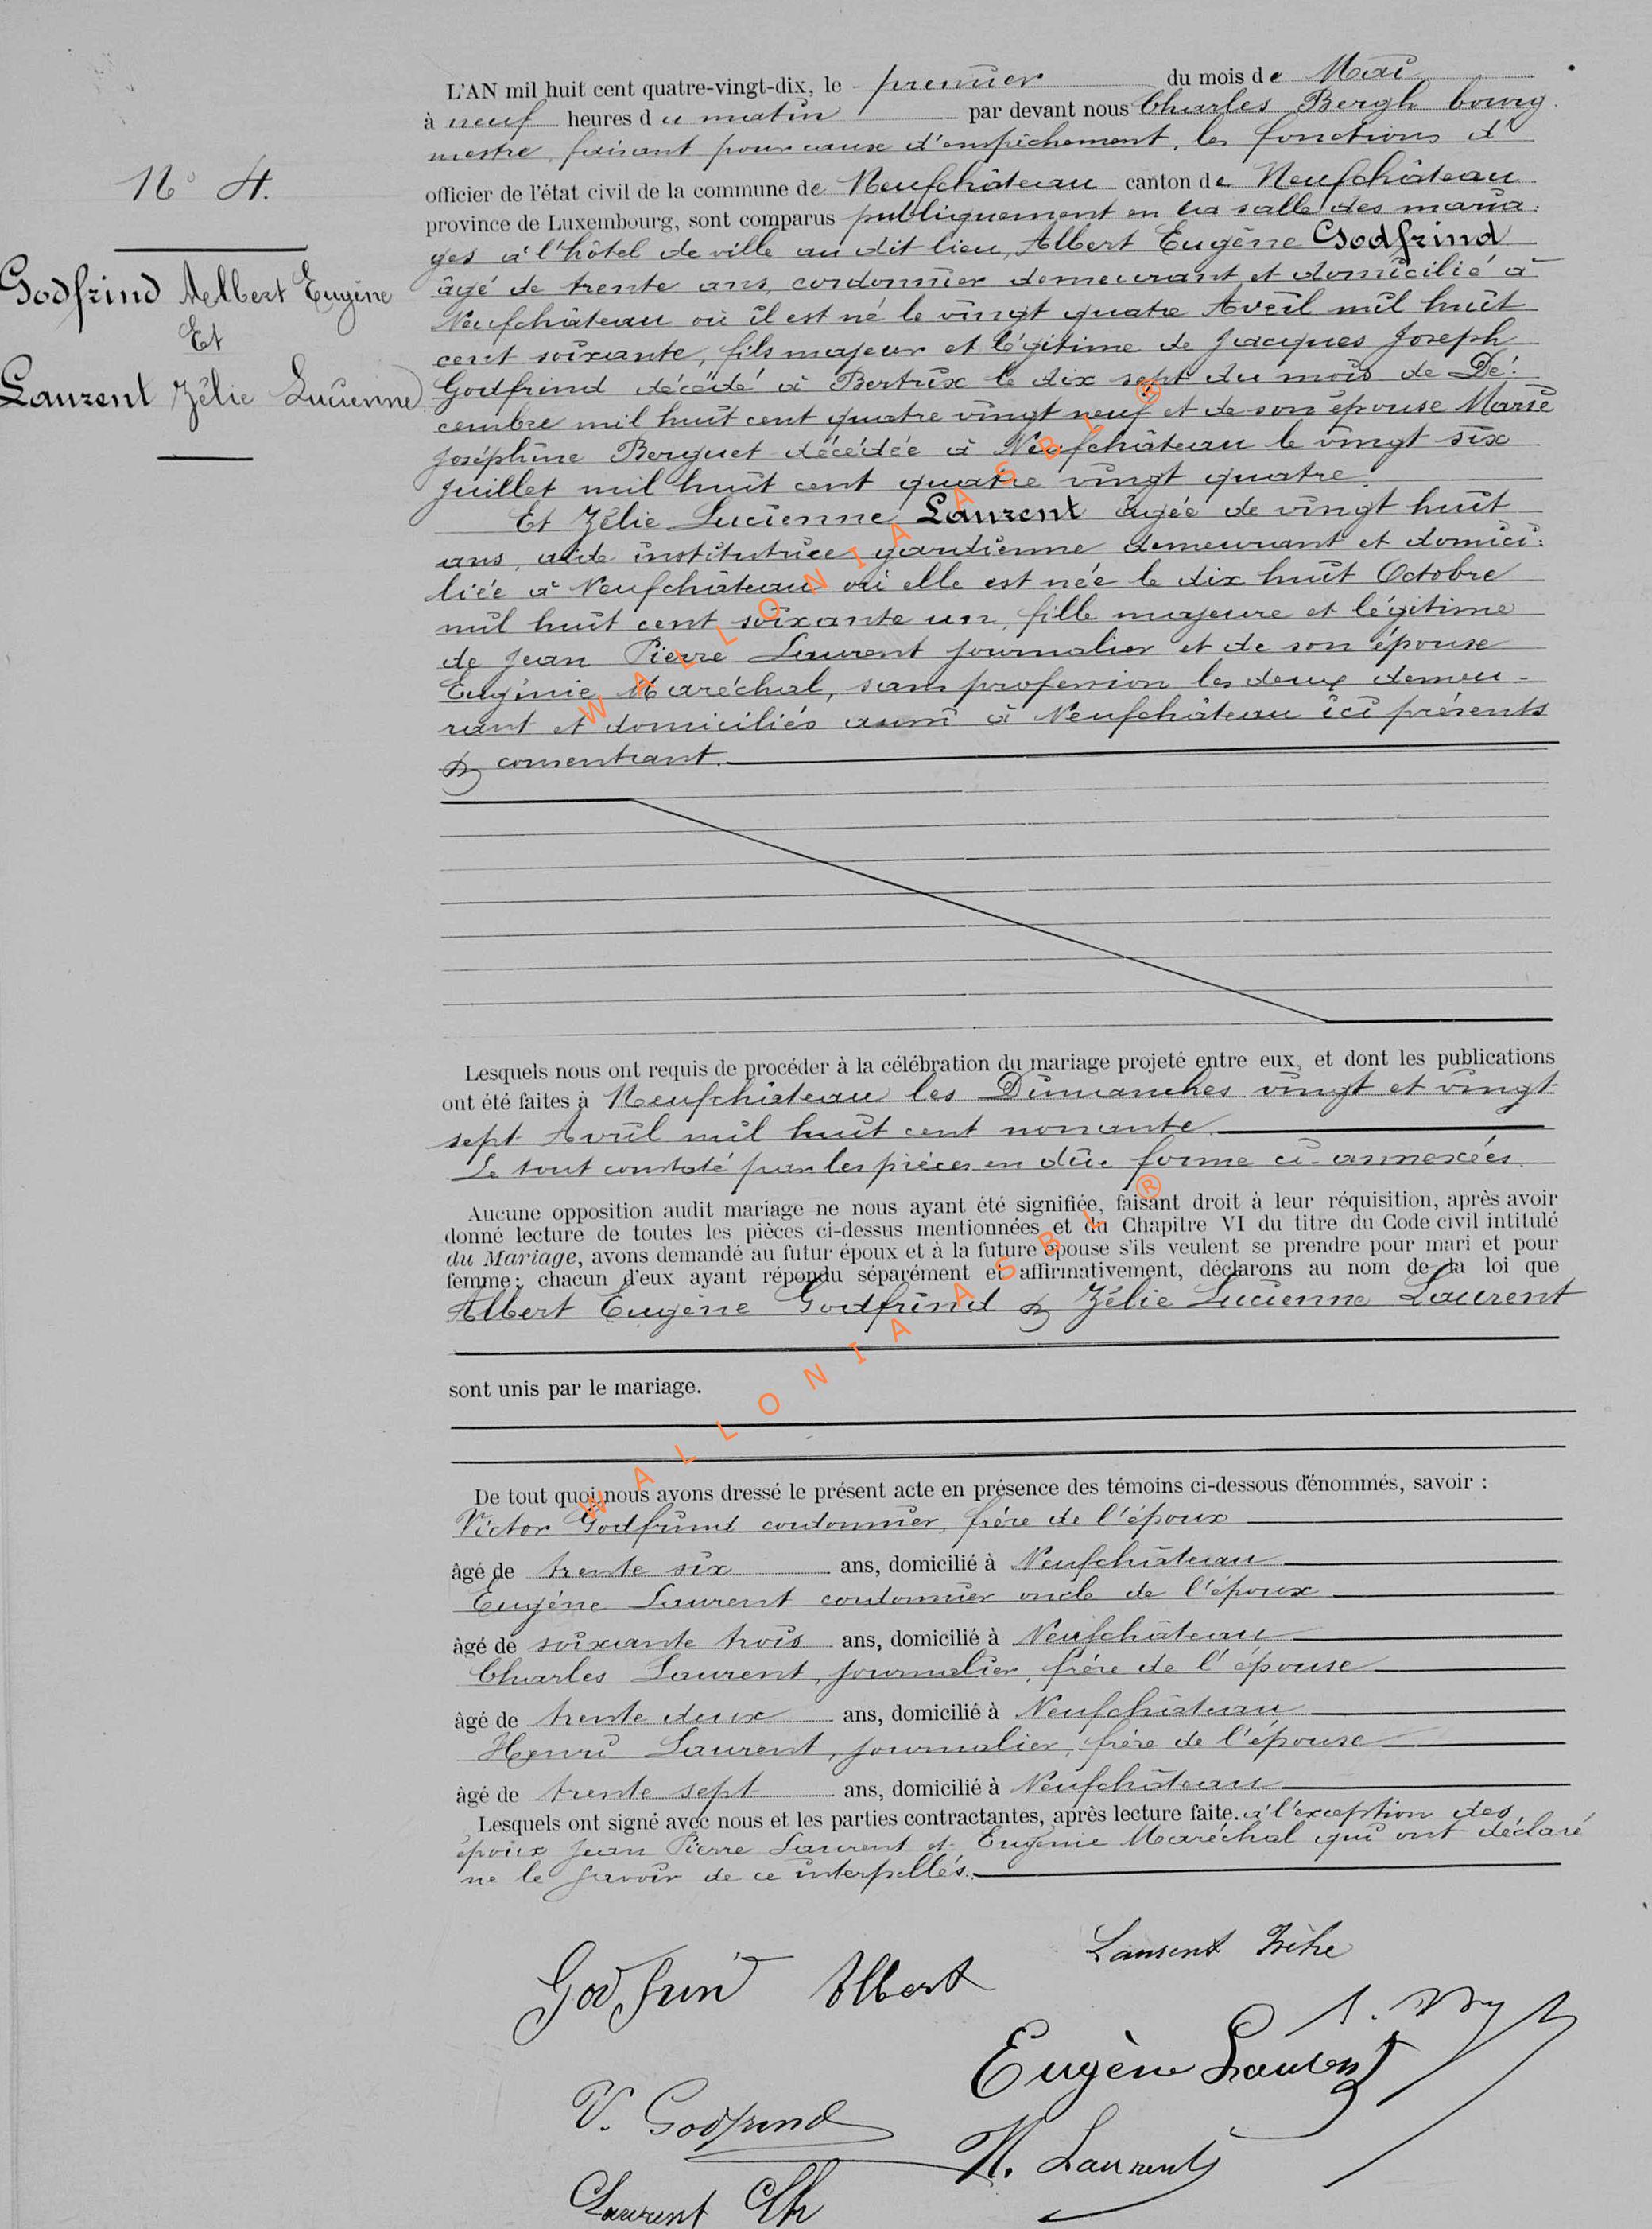 L'AN mil huit cent quatre-vingt-dix, le premier du mois de Mai
à neuf heures du matin par devant nous Charles Bergh bourg
mestre, faisant pour cause d'empêchement, les fonctions d'
officier de l'état civil de la commune de Neufchâteau canton de Neufchâteau
province de Luxembourg, sont comparus publiquement en la salle des maria:
ges à l'hôtel de ville au dit lieu, Albert Eugène Godfrind
âgé de trente ans, cordonnier demeurant et domicilié à
Neufchâteau où il est né le vingt quatre Avril mil huit
cent soixante, fils majeur et légitime de Jacques Joseph
Godfrind décédé à Bertrix le dix sept du mois de Dé:
cembre mil huit cent quatre vingt neuf et de son épouse Marie
Joséphine Berguet décédée à Neufchâteau le vingt six
Juillet mil huit cent quatre vingt quatre.
Et Zélie Lucienne Laurent âgée de vingt huit
ans, aide institutrice gardienne demeurant et domici:
liée à Neufchâteau où elle est née le dix huit Octobre
mil huit cent soixante un, fille majeure et légitime
de Jean Pierre Laurent journalier et de son épouse
Eugénie Maréchal, sans profession les deux demeu-
rant et domiciliés aussi à Neufchâteau ici présents
& consentant.
N° 4.
Godfrind Albert Eugène
Et
Laurent Zélie Lucienne
Lesquels nous ont requis de procéder à la célébration du mariage projeté entre eux, et dont les publications
ont été faites à Neufchâteau les Dimanches vingt et vingt
sept Avril mil huit cent nonante.
Le tout constaté par les pièces en dûe forme ci-annexées.
Aucune opposition audit mariage ne nous ayant été signifiée, faisant droit à leur réquisition, après avoir
donné lecture de toutes les pièces ci-dessus mentionnées et du Chapitre VI du titre du Code civil intitulé
du Mariage, avons demandé au futur époux et à la future épouse s'ils veulent se prendre pour mari et pour
femme; chacun d'eux ayant répondu séparément et affirmativement, déclarons au nom de la loi que
Albert Eugène Godfrind & Zélie Lucienne Laurent
sont unis par le mariage.
De tout quoi nous avons dressé le présent acte en présence des témoins ci-dessous dénommés, savoir :
Victor Godfrind cordonnier, frère de l'époux
âgé de trente six ans, domicilié à Neufchâteau
Eugène Laurent cordonnier oncle de l'époux
âgé de soixante trois ans, domicilié à Neufchâteau
Charles Laurent, journalier, frère de l'épouse
âgé de trente deux ans, domicilié à Neufchâteau
Henri Laurent, journalier, frère de l'épouse
âgé de trente sept ans, domicilié à Neufchâteau
Lesquels ont signé avec nous et les parties contractantes, après lecture faite. à l'exception des
époux Jean Pierre Laurent et Eugénie Maréchal qui ont déclaré
ne le savoir de ce interpellés.
Laurent Zélie
Godfrind Albert
Eugène Laurent
V. Godfrind
H. Laurent
Laurent Ch
WALLONIA ASBL ®
WALLONIA ASBL ®